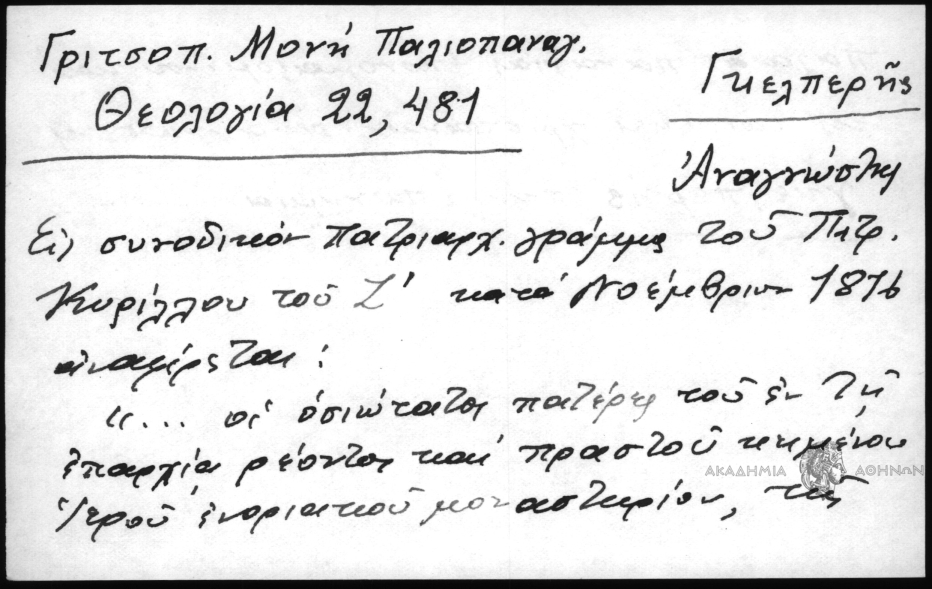 Γριτσοπ. Μονή Παλιοπαναγ.
Θεολογία 22, 481
Γκελπερῆς
Ἀναγνώστης
Εἰς συνοδικόν πατριαρχ. γράμμα τοῦ Πατρ.
Κυρίλλου τοῦ Ζ' κατά Νοέμβριον 1816
ἀναφέρεται :
"... οἱ ὁσιώτατοι πατέρες τοῦ ἐν τῇ
ἐπαρχίᾳ ρέοντος καί πραστοῦ κειμένου
ἱεροῦ ἐνοριακοῦ μοναστηρίου, τῆς
ΑΚΑΔΗΜΙΑ ΑΘΗΝΩΝ